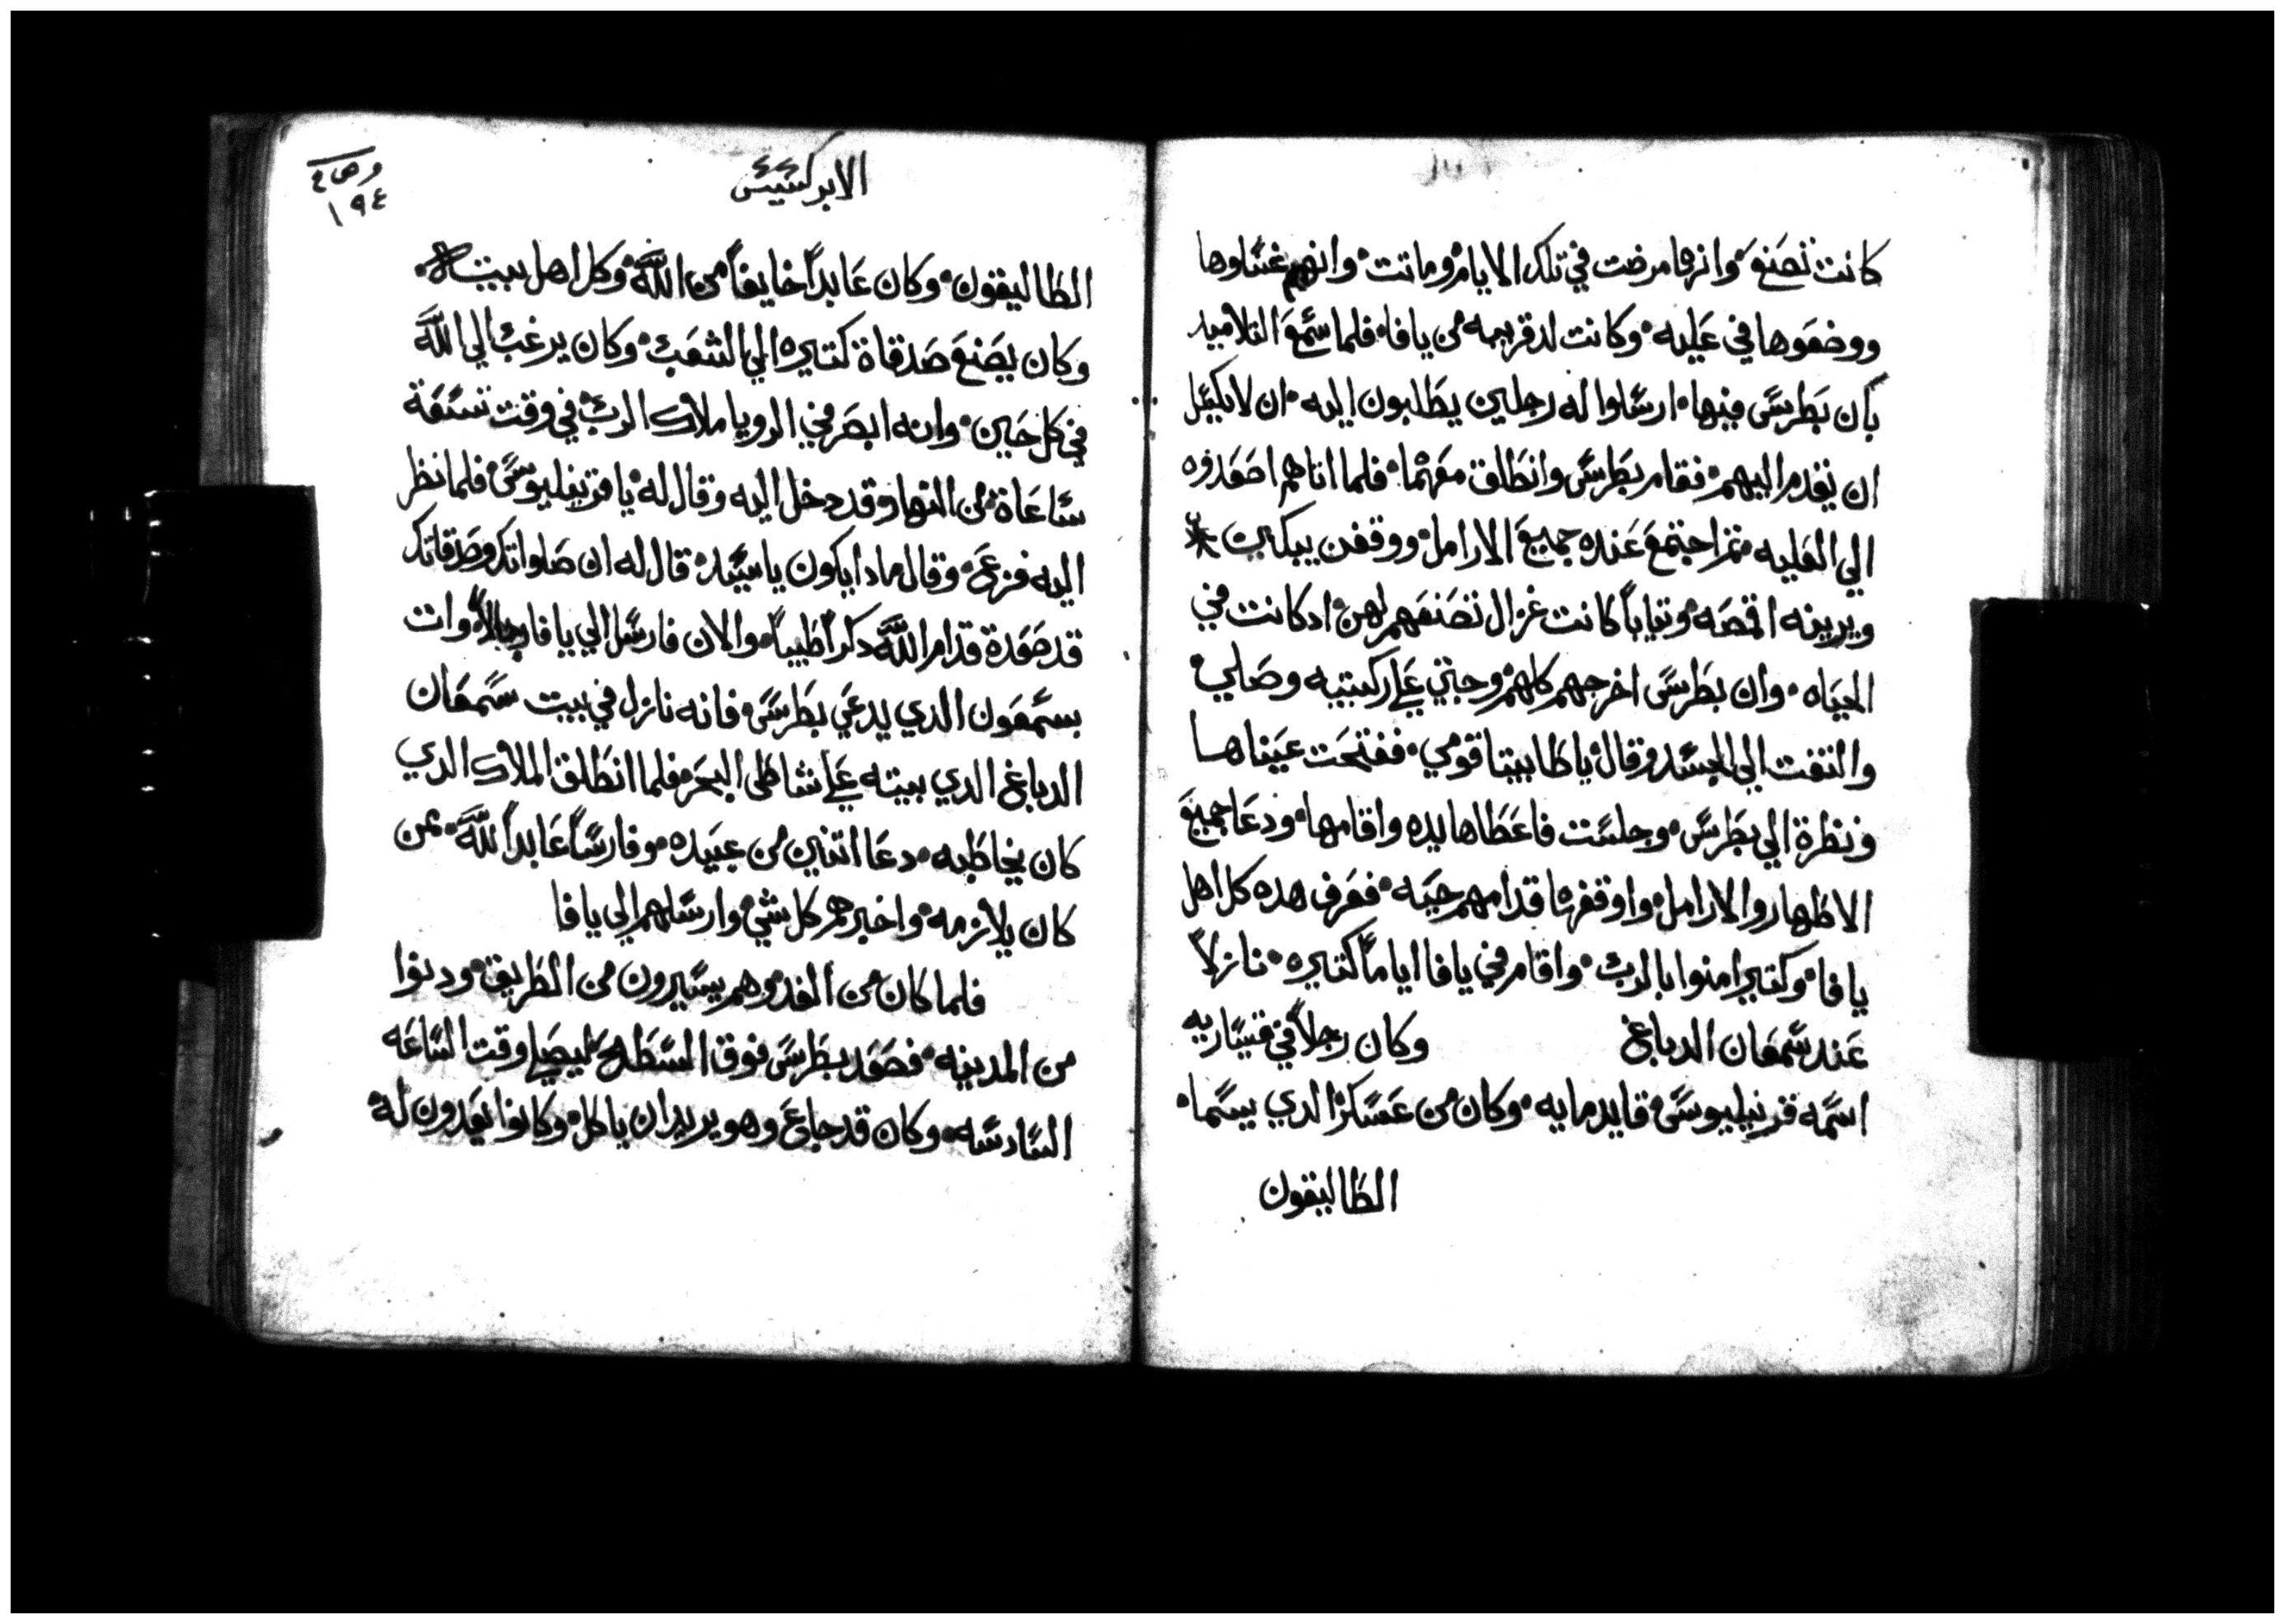 كانت تصنع وانها مرضت في تلك الايام وماتت وانهم غسلوها
ووضعوها في عليه وكانت لد قريبه من يافا فلما سمع التلاميد
بأن بطرس فيها ارسلوا له رجلين يطلبون اليه ان لا يكسل
ان يقدم اليهم فقام بطرس وانطلق معهما فلما اتاهم اصعدوه
الي العليه ثم اجتمع عنده جميع الارامل ووقفن يبكين
ويرينه اقمصه وتيابًا كانت غزال تصنعهم لهن اد كانت في
الحياه وان بطرس اخرجهم كلهم وجتي علي ركبتيه وصلي
والتفت الي الجسد وقال يا طابيتا قومي ففتحت عيناها
ونظرة الي بطرس وجلست فاعطاها يده واقامها ودعا جميع
الاطهار والارامل واوقفها قدامهم حيه فعرف هده كل اهل
يافا وكتير امنوا بالرب واقام في يافا ايامًا كتيره نازلاً
عند سمعان الدباغ وكان رجلاً في قيساريه
اسمه قرنيليوس قايد مايه وكان من عسكر الدي يسما
الطاليقون
الابركسيس
١٩٤
الطاليقون وكان عابدًا خايفًا من الله وكل اهل بيته
وكان يصنع صدقاة كتيره الي الشعب وكان يرغب الي الله
في كل حين وانه ابصر في الرويا ملاك الرب في وقت تسعة
ساعاة من النهار وقد دخل اليه وقال له يا قرنيليوس فلما نظر
اليه فزع وقال مادا يكون يا سيد قال له ان صلواتك وصدقاتك
قد صعدة قدام الله دكرًا طيبًا والان فارسل الي يافا رجالاً وات
بسمعون الدي يدعي بطرس فانه نازل في بيت سمعان
الدباغ الدي بيته علي شاطى البحر فلما انطلق الملاك الدي
كان يخاطبه دعا اتنين من عبيده وفارسًا عابدًا لله ممن
كان يلازمه واخبرهم كل شي وارسلهم الي يافا
فلما كان من الغد وهم يسيرون من الطريق ودنوا
من المدينه فصعد بطرس فوق السطح ليصلي وقت الساعه
السادسه وكان قد جاع وهو يريد ان ياكل وكانوا يعدون له